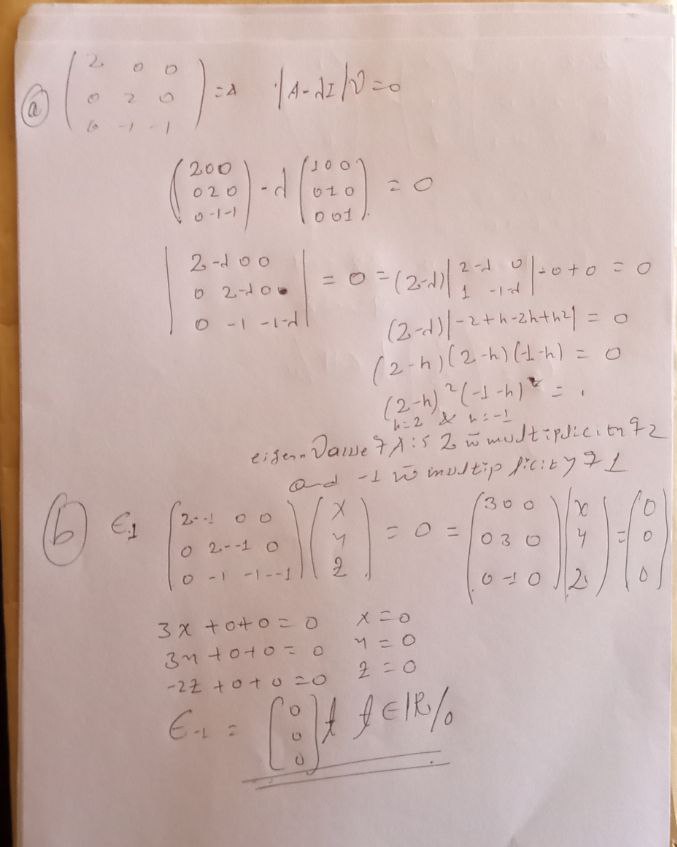 ⓐ (2 0 0 / 0 2 0 / 0 -1 -1) = A |A-λI|V = 0
(2 0 0 / 0 2 0 / 0 -1 -1) - λ (1 0 0 / 0 1 0 / 0 0 1) = 0
|2-λ 0 0 / 0 2-λ 0 / 0 -1 -1-λ| = 0 = (2-λ)|2-λ 0 / 1 -1-λ| - 0 + 0 = 0
(2-λ)|-2+h-2h+h²| = 0
(2-h)(2-h)(-1-h) = 0
(2-h)²(-1-h) = .
h=2 & h=-1
eigen value of A is 2 w multiplicity of 2
and -1 w multiplicity of 1
ⓑ E-1 (2--1 0 0 / 0 2--1 0 / 0 -1 -1--1)(x / y / z) = 0 = (3 0 0 / 0 3 0 / 0 -1 0)(x / y / z) = (0 / 0 / 0)
3x + 0 + 0 = 0 x = 0
3y + 0 + 0 = 0 y = 0
-2z + 0 + 0 = 0 z = 0
E-1 = (0 / 0 / 0) t t ∈ IR/0